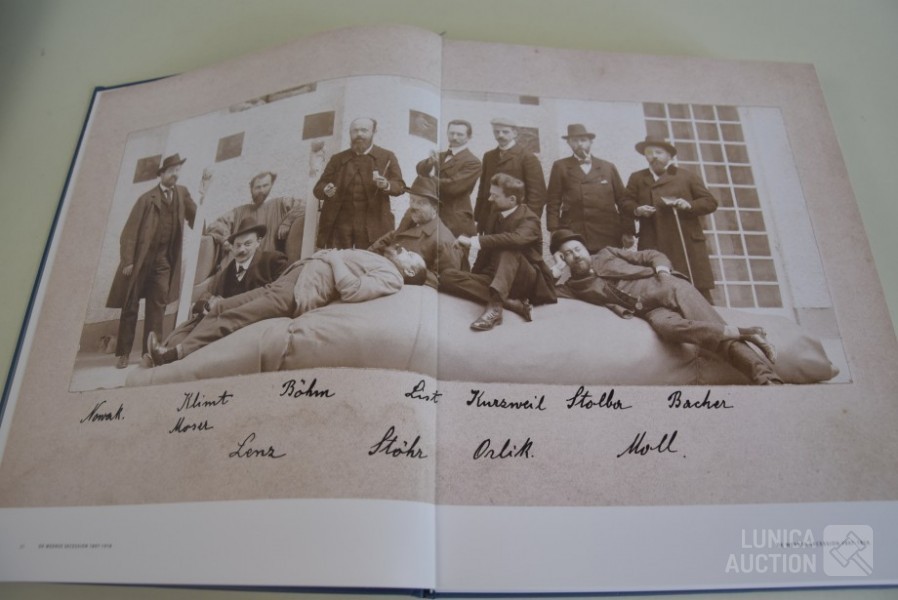 Nowak. Klimt Böhm List Kurzweil Stolba Bacher
Moser
Lenz Stöhr Orlik. Moll.
LUNICA
AUCTION